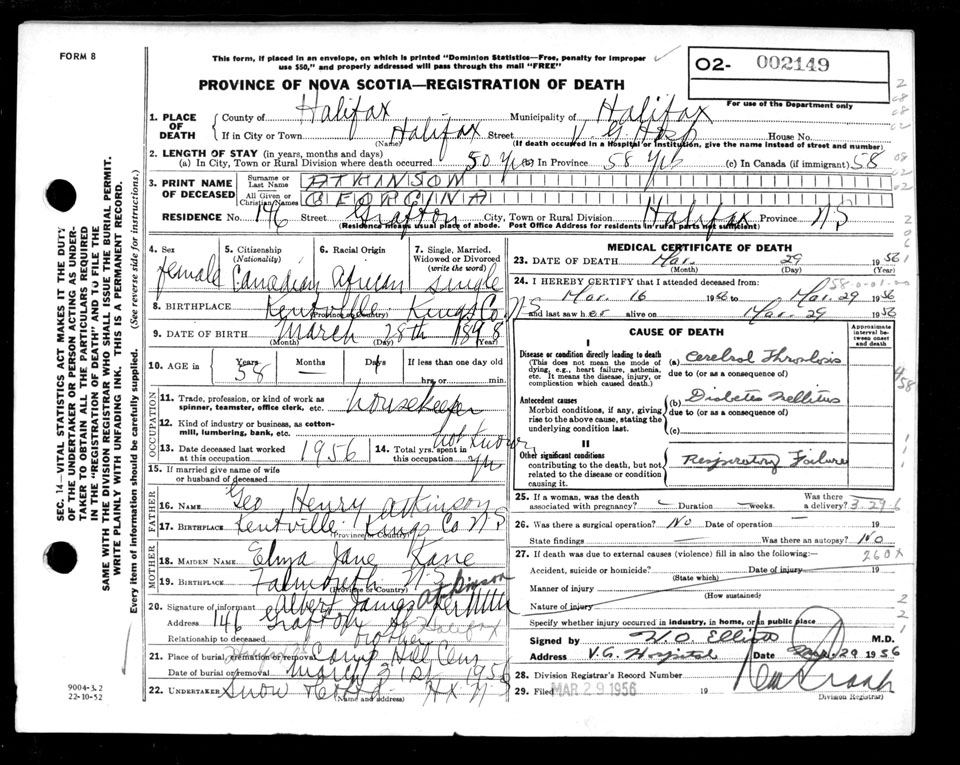 FORM 8
This form, if placed in an envelope, on which is printed "Dominion Statistics—Free, penalty for improper
use $50," and properly addressed will pass through the mail "FREE"
O2- 002149
For use of the Department only
PROVINCE OF NOVA SCOTIA—REGISTRATION OF DEATH
1. PLACE OF DEATH
County of Halifax Municipality of Halifax
If in City or Town Halifax Street V. G Hosp House No.
(Name) (If death occurred in a Hospital or Institution, give the name instead of street and number)
2. LENGTH OF STAY (in years, months and days)
(a) In City, Town or Rural Division where death occurred 50 Yrs (b) in Province 58 Yrs (c) In Canada (if immigrant) 58
3. PRINT NAME OF DECEASED
Surname or Last Name ATKINSON
All Given or Christian Names GEORGINA
RESIDENCE No. 146 Street Grafton City, Town or Rural Division Halifax Province N S
(Residence means usual place of abode. Post Office Address for residents in rural parts not sufficient)
4. Sex female
5. Citizenship (Nationality) Canadian
6. Racial Origin African
7. Single, Married, Widowed or Divorced (write the word) Single
8. BIRTHPLACE Kentville Kings Co. N S
(Province or Country)
9. DATE OF BIRTH March 28th 1898
(Month) (Day) (Year)
10. AGE in Years 58 Months — Days If less than one day old
hrs. or min.
OCCUPATION
11. Trade, profession, or kind of work as
spinner, teamster, office clerk, etc. housekeeper
12. Kind of industry or business, as cotton-
mill, lumbering, bank, etc.
13. Date deceased last worked
at this occupation 1956
14. Total yrs. spent in
this occupation not Known
15. If married give name of wife
or husband of deceased
FATHER
16. NAME Geo Henry Atkinson
17. BIRTHPLACE Kentville Kings Co N S
(Province or Country)
MOTHER
18. MAIDEN NAME Jane Kane
19. BIRTHPLACE Falmouth N S
(Province or Country)
20. Signature of informant Albert James Atkinson
Address 146 Grafton St Halifax
Relationship to deceased brother
21. Place of burial, cremation or removal Camp Hill Cem
Date of burial or removal March 31st 1956
22. UNDERTAKER Snow & Co Ltd Hx N S
(Name and address)
MEDICAL CERTIFICATE OF DEATH
23. DATE OF DEATH Mar. 29 1956
(Month) (Day) (Year)
24. I HEREBY CERTIFY that I attended deceased from:
Mar. 16 1956 to Mar. 29 1956
and last saw her alive on Mar. 29 1956
CAUSE OF DEATH
Approximate interval between onset and death
I
Disease or condition directly leading to death
(This does not mean the mode of
dying, e.g., heart failure, asthenia,
etc. It means the disease, injury, or
complication which caused death.)
(a) Cerebral Thrombosis
due to (or as a consequence of)
Antecedent causes
Morbid conditions, if any, giving
rise to the above cause, stating the
underlying condition last.
(b) Diabetes Mellitus
due to (or as a consequence of)
(c)
II
Other significant conditions
contributing to the death, but not
related to the disease or condition
causing it.
Respiratory Failure
25. If a woman, was the death
associated with pregnancy? — Duration — weeks. Was there a delivery?
26. Was there a surgical operation? No Date of operation — 19
State findings — Was there an autopsy? No
27. If death was due to external causes (violence) fill in also the following: 260X
Accident, suicide or homicide? Date of injury 19
(State which)
Manner of injury
(How sustained)
Nature of injury
Specify whether injury occurred in industry, in home, or in public place
Signed by H. D. Elliott M.D.
Address V.G. Hospital Date Mar. 29 1956
28. Division Registrar's Record Number
29. Filed MAR 29 1956 19
Division Registrar
SEC. 14—VITAL STATISTICS ACT MAKES IT THE DUTY
OF THE UNDERTAKER OR PERSON ACTING AS UNDER-
TAKER TO OBTAIN ALL THE PARTICULARS REQUIRED
IN THE "REGISTRATION OF DEATH" AND TO FILE THE
SAME WITH THE DIVISION REGISTRAR WHO SHALL ISSUE THE BURIAL PERMIT.
WRITE PLAINLY WITH UNFADING INK. THIS IS A PERMANENT RECORD.
Every item of information should be carefully supplied. (See reverse side for instructions.)
9004-3.2
22-10-52